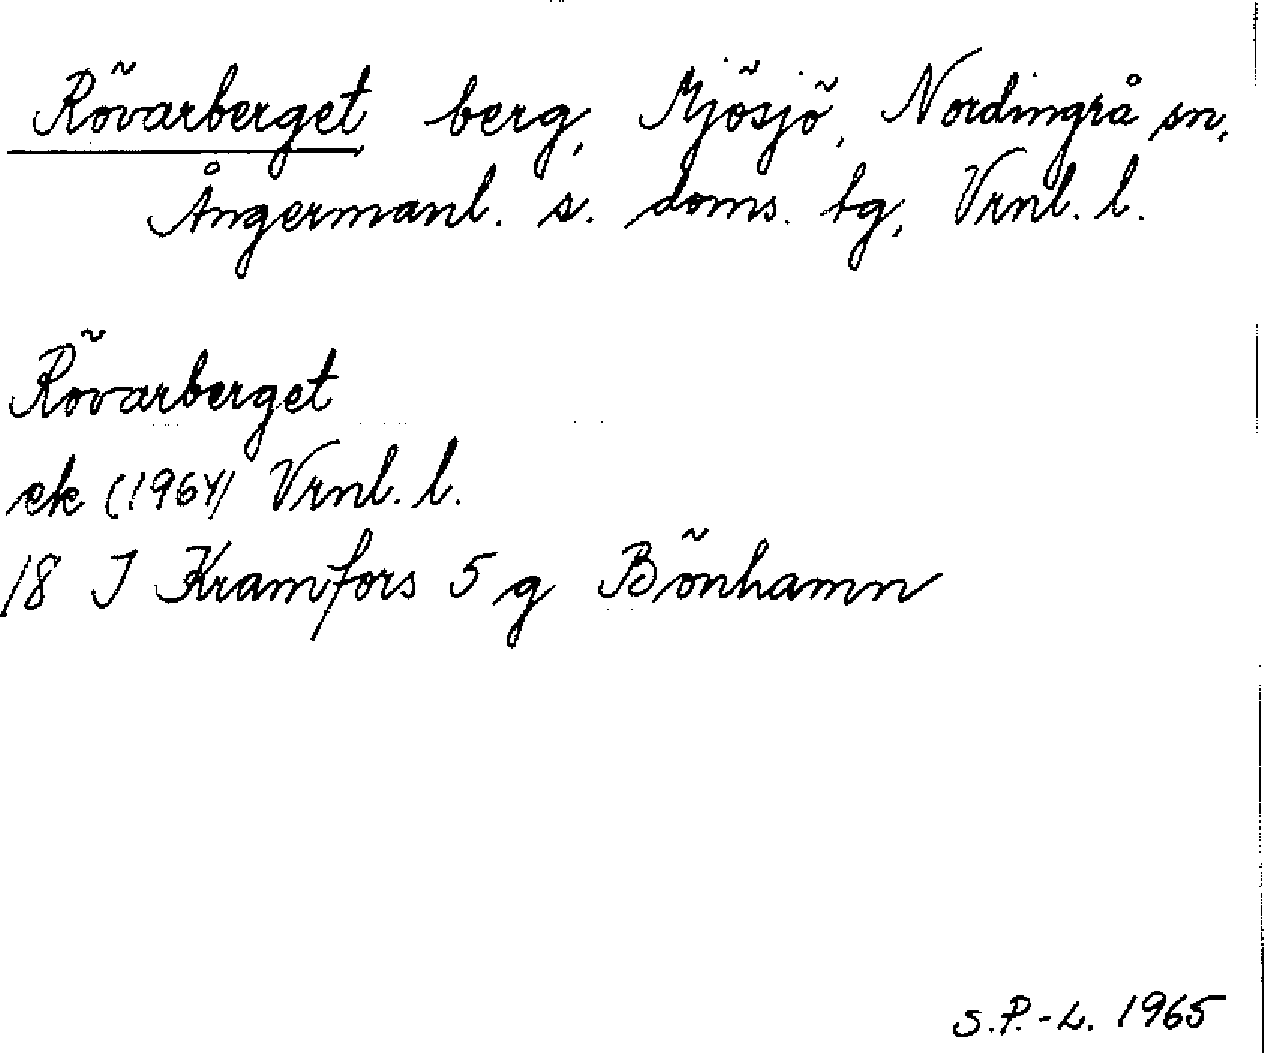 Rövarberget berg, Mjösjö, Nordingrå sn,
Ångermanl. s. doms. tg, Vrnl. l.
Rövarberget
ek (1964) Vrnl. l.
18 J Kramfors 5 g Bönhamn
S.P.-L. 1965